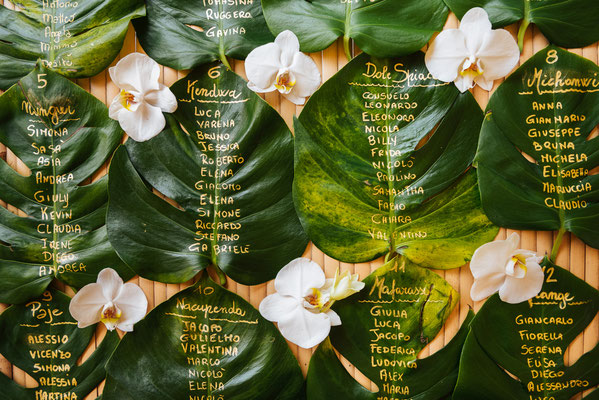 Matteo
Angela
Desirè
Tommasina
Ruggero
Gavina
5
Mnemba
Simona
Sasà
Asia
Andrea
Giuly
Kevin
Claudia
Irene
Diego
Andrea
6
Kendwa
Luca
Varena
Bruno
Jessica
Roberto
Elena
Giacomo
Elena
Simone
Riccardo
Stefano
Gabriele
Dole Spice
Consuelo
Leonardo
Eleonora
Nicola
Billy
Frida
Nicolò
Paolino
Samantha
Fabio
Chiara
Valentino
8
Michamvi
Anna
Gianmario
Giuseppe
Bruna
Michela
Elisabetta
Mariuccia
Claudio
9
Paje
Alessio
Vicenzo
Simona
Alessia
Martina
10
Nakupenda
Jacopo
Gulielmo
Valentina
Marco
Nicolò
Elena
Nicolò
11
Matarussi
Giulia
Luca
Jacopo
Federica
Ludovica
Alex
Maria
12
Giancarlo
Fiorella
Serena
Elisa
Diego
Alessandro